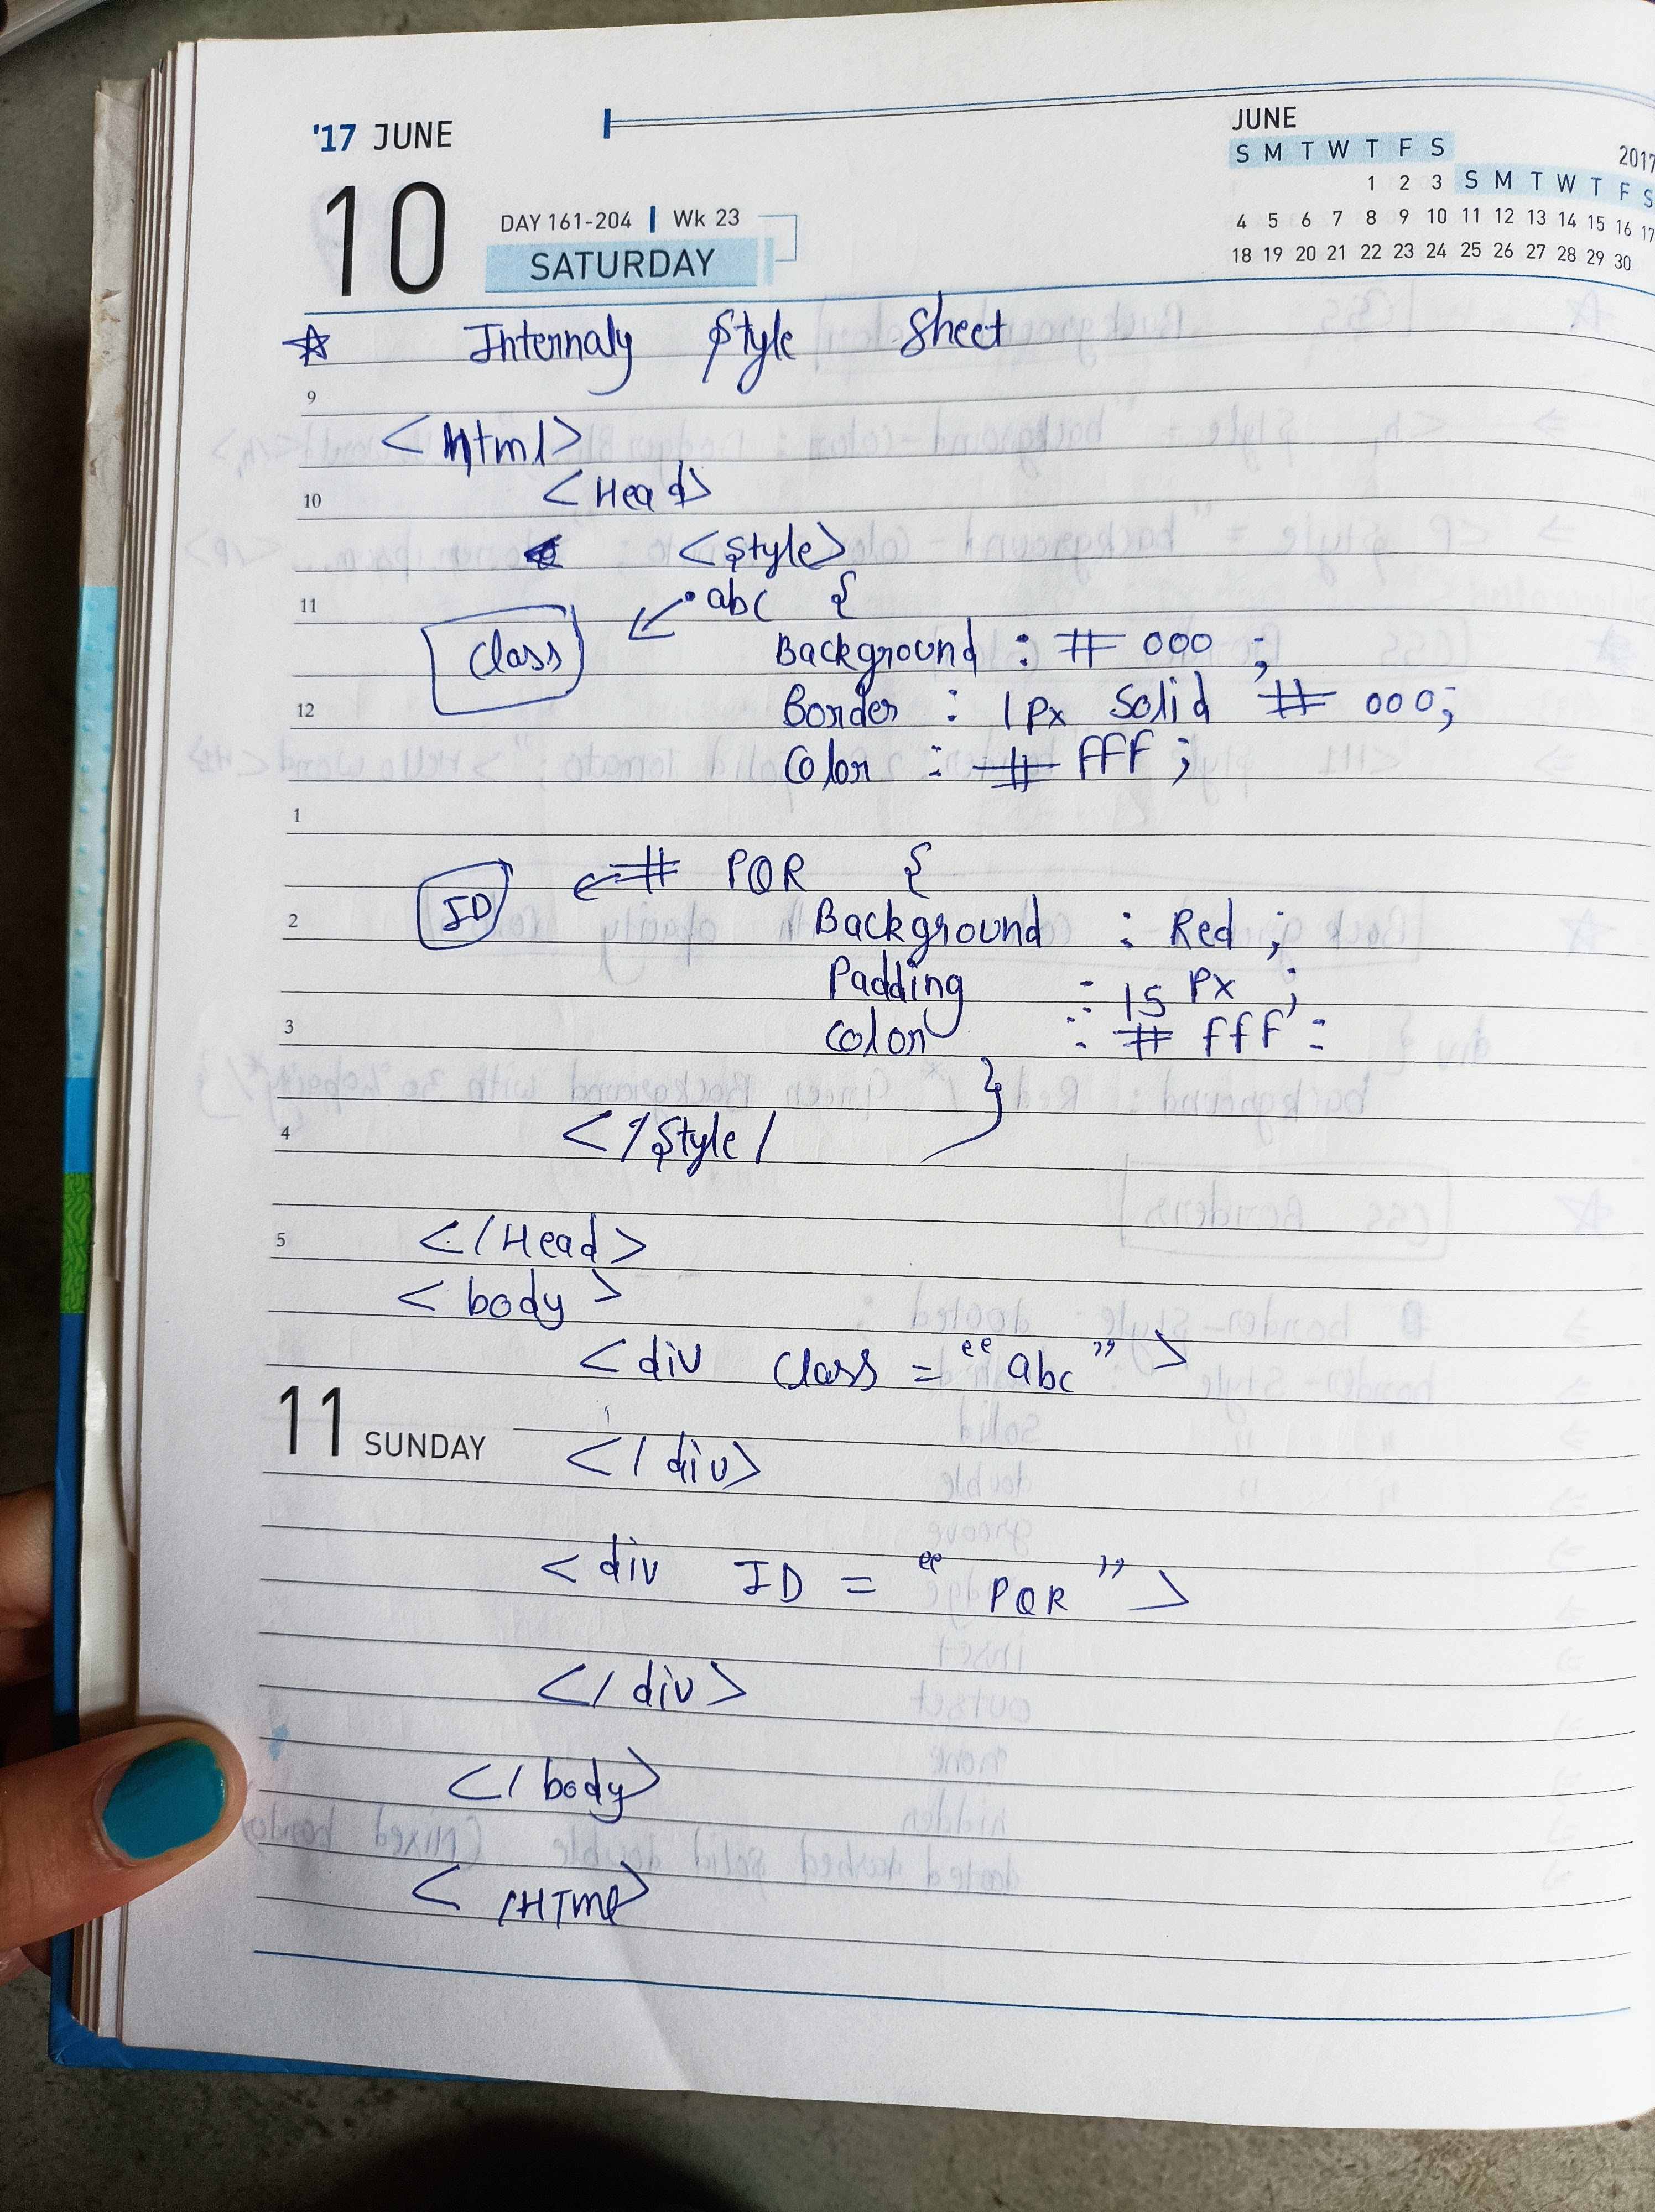 '17 JUNE
10
DAY 161-204 | Wk 23
SATURDAY
JUNE
2017
S M T W T F S
S M T W T F S
1 2 3
4 5 6 7 8 9 10 11 12 13 14 15 16 17
18 19 20 21 22 23 24 25 26 27 28 29 30
☆ Internaly Style Sheet
9
<html>
10
<Head>
<style>
11
.abc {
Class
Background : # 000 ;
12
Border : 1px Solid # 000;
Color : # fff ;
1
# PQR {
ID
2
Background : Red ;
Padding : 15 px ;
3
Color : # fff :
}
4
</style/
5
</Head>
<body>
<div class = "abc">
11 SUNDAY
</div>
<div ID = "PQR">
</div>
</body>
</HTml>